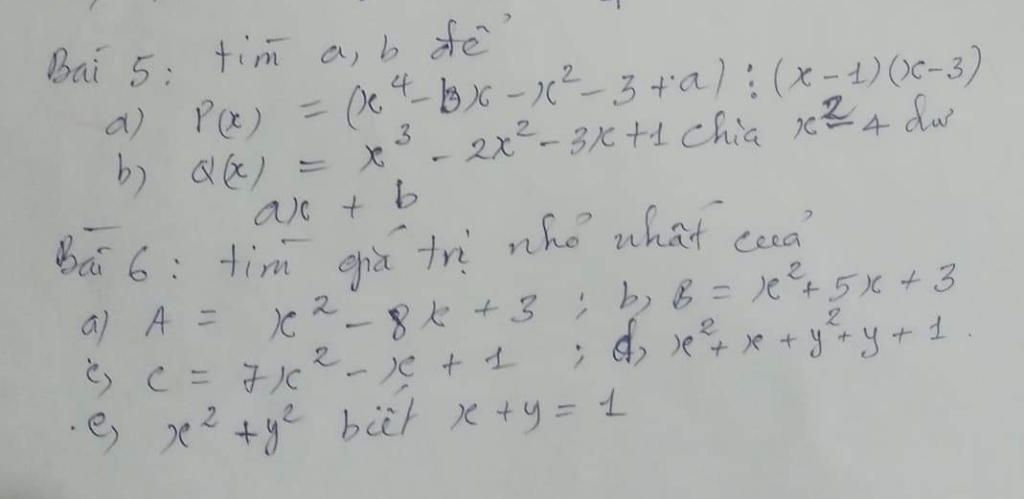 Bài 5: tìm a, b để
a) P(x) = (x⁴ - bx - x² - 3 + a) ⋮ (x - 1)(x - 3)
b) Q(x) = x³ - 2x² - 3x + 1 chia x² - 4 dư
ax + b
Bài 6: tìm giá trị nhỏ nhất của
a) A = x² - 8x + 3 ; b, B = x² + 5x + 3
c, C = 7x² - x + 1 ; d, x² + x + y² + y + 1.
e, x² + y² biết x + y = 1